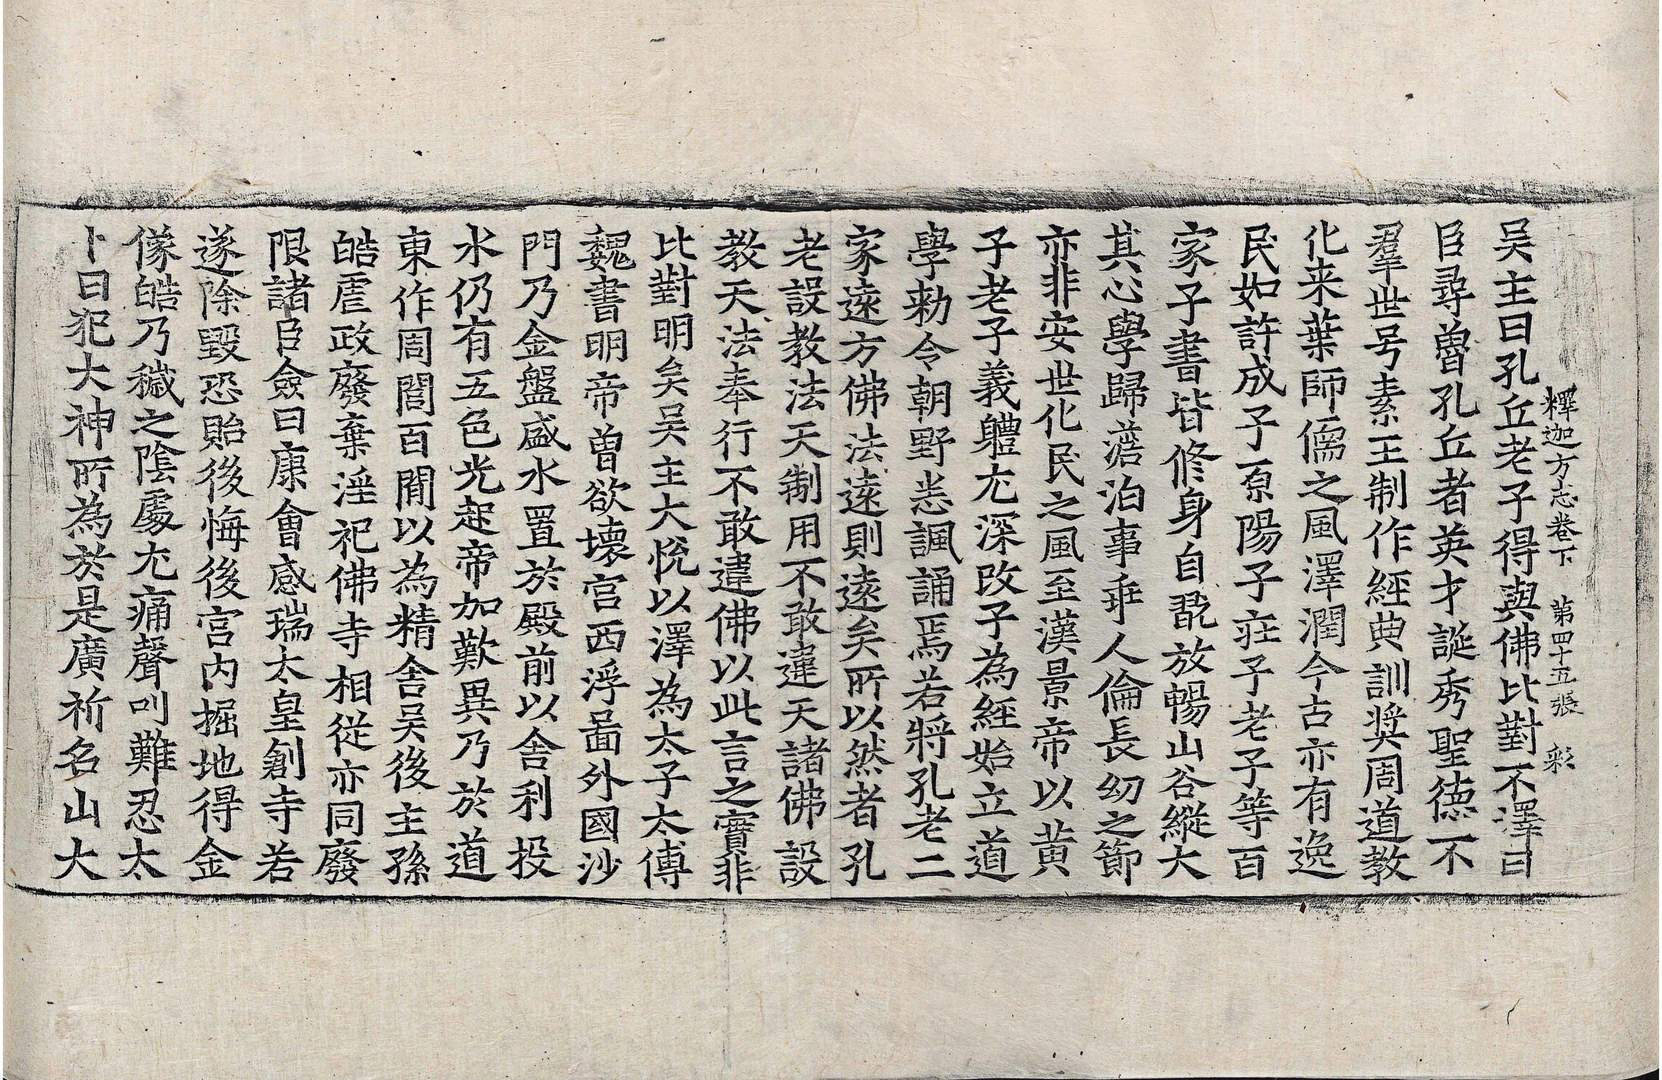 釋迦方志卷下 第四十五張 彩
吴主曰孔丘老子得與佛比對不澤曰
臣尋魯孔丘者英才誕秀聖德不
羣世号素王制作經典訓奨周道教
化来葉師儒之風澤潤今古亦有逸
民如許成子原陽子莊子老子等百
家子書皆修身自翫放暢山谷縱大
其心學歸澹泊事乖人倫長幼之節
亦非安世化民之風至漢景帝以黄
子老子義軆尤深改子為經始立道
學勑令朝野悉諷誦焉若將孔老二
家遠方佛法遠則遠矣所以然者孔
老設教法天制用不敢違天諸佛設
教天法奉行不敢違佛以此言之實非
比對明矣吴主大悅以澤為太子太傅
魏書明帝曽欲壊宫西浮啚外國沙
門乃金盤盛水置於殿前以舎利投
水仍有五色光起帝加歎異乃於道
東作周閣百閒以為精舎吴後主孫
皓虐政廢棄淫祀佛寺相従亦同廢
限諸臣僉曰康會感瑞太皇創寺若
遂除毀恐貽後悔後宫内掘地得金
像皓乃穢之陰處尤痛聲叫難忍太
卜曰犯大神所為於是廣祈名山大